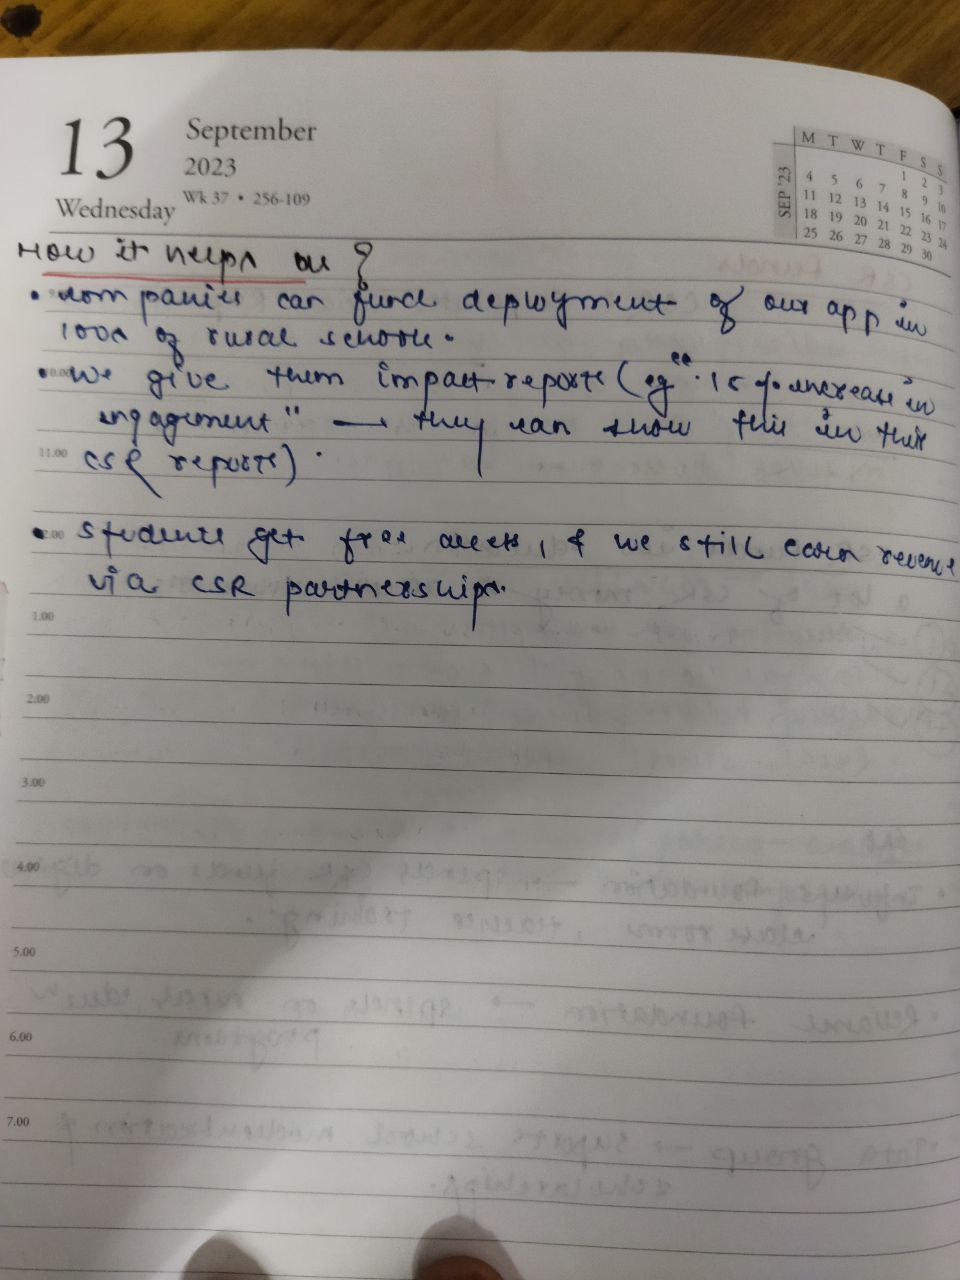 13
September
2023
Wednesday
Wk 37 • 256-109
SEP '23
M T W T F S S
1 2 3
4 5 6 7 8 9 10
11 12 13 14 15 16 17
18 19 20 21 22 23 24
25 26 27 28 29 30
How it helps us ?
• companies can fund deployment of our app in
100s of rural schools.
10.00
• we give them impact reports (eg "15% increase in
engagement" → they can show this in their
11.00
CSR reports).
• students get free access, & we still earn revenue
via CSR partnerships.
1.00
2.00
3.00
4.00
5.00
6.00
7.00